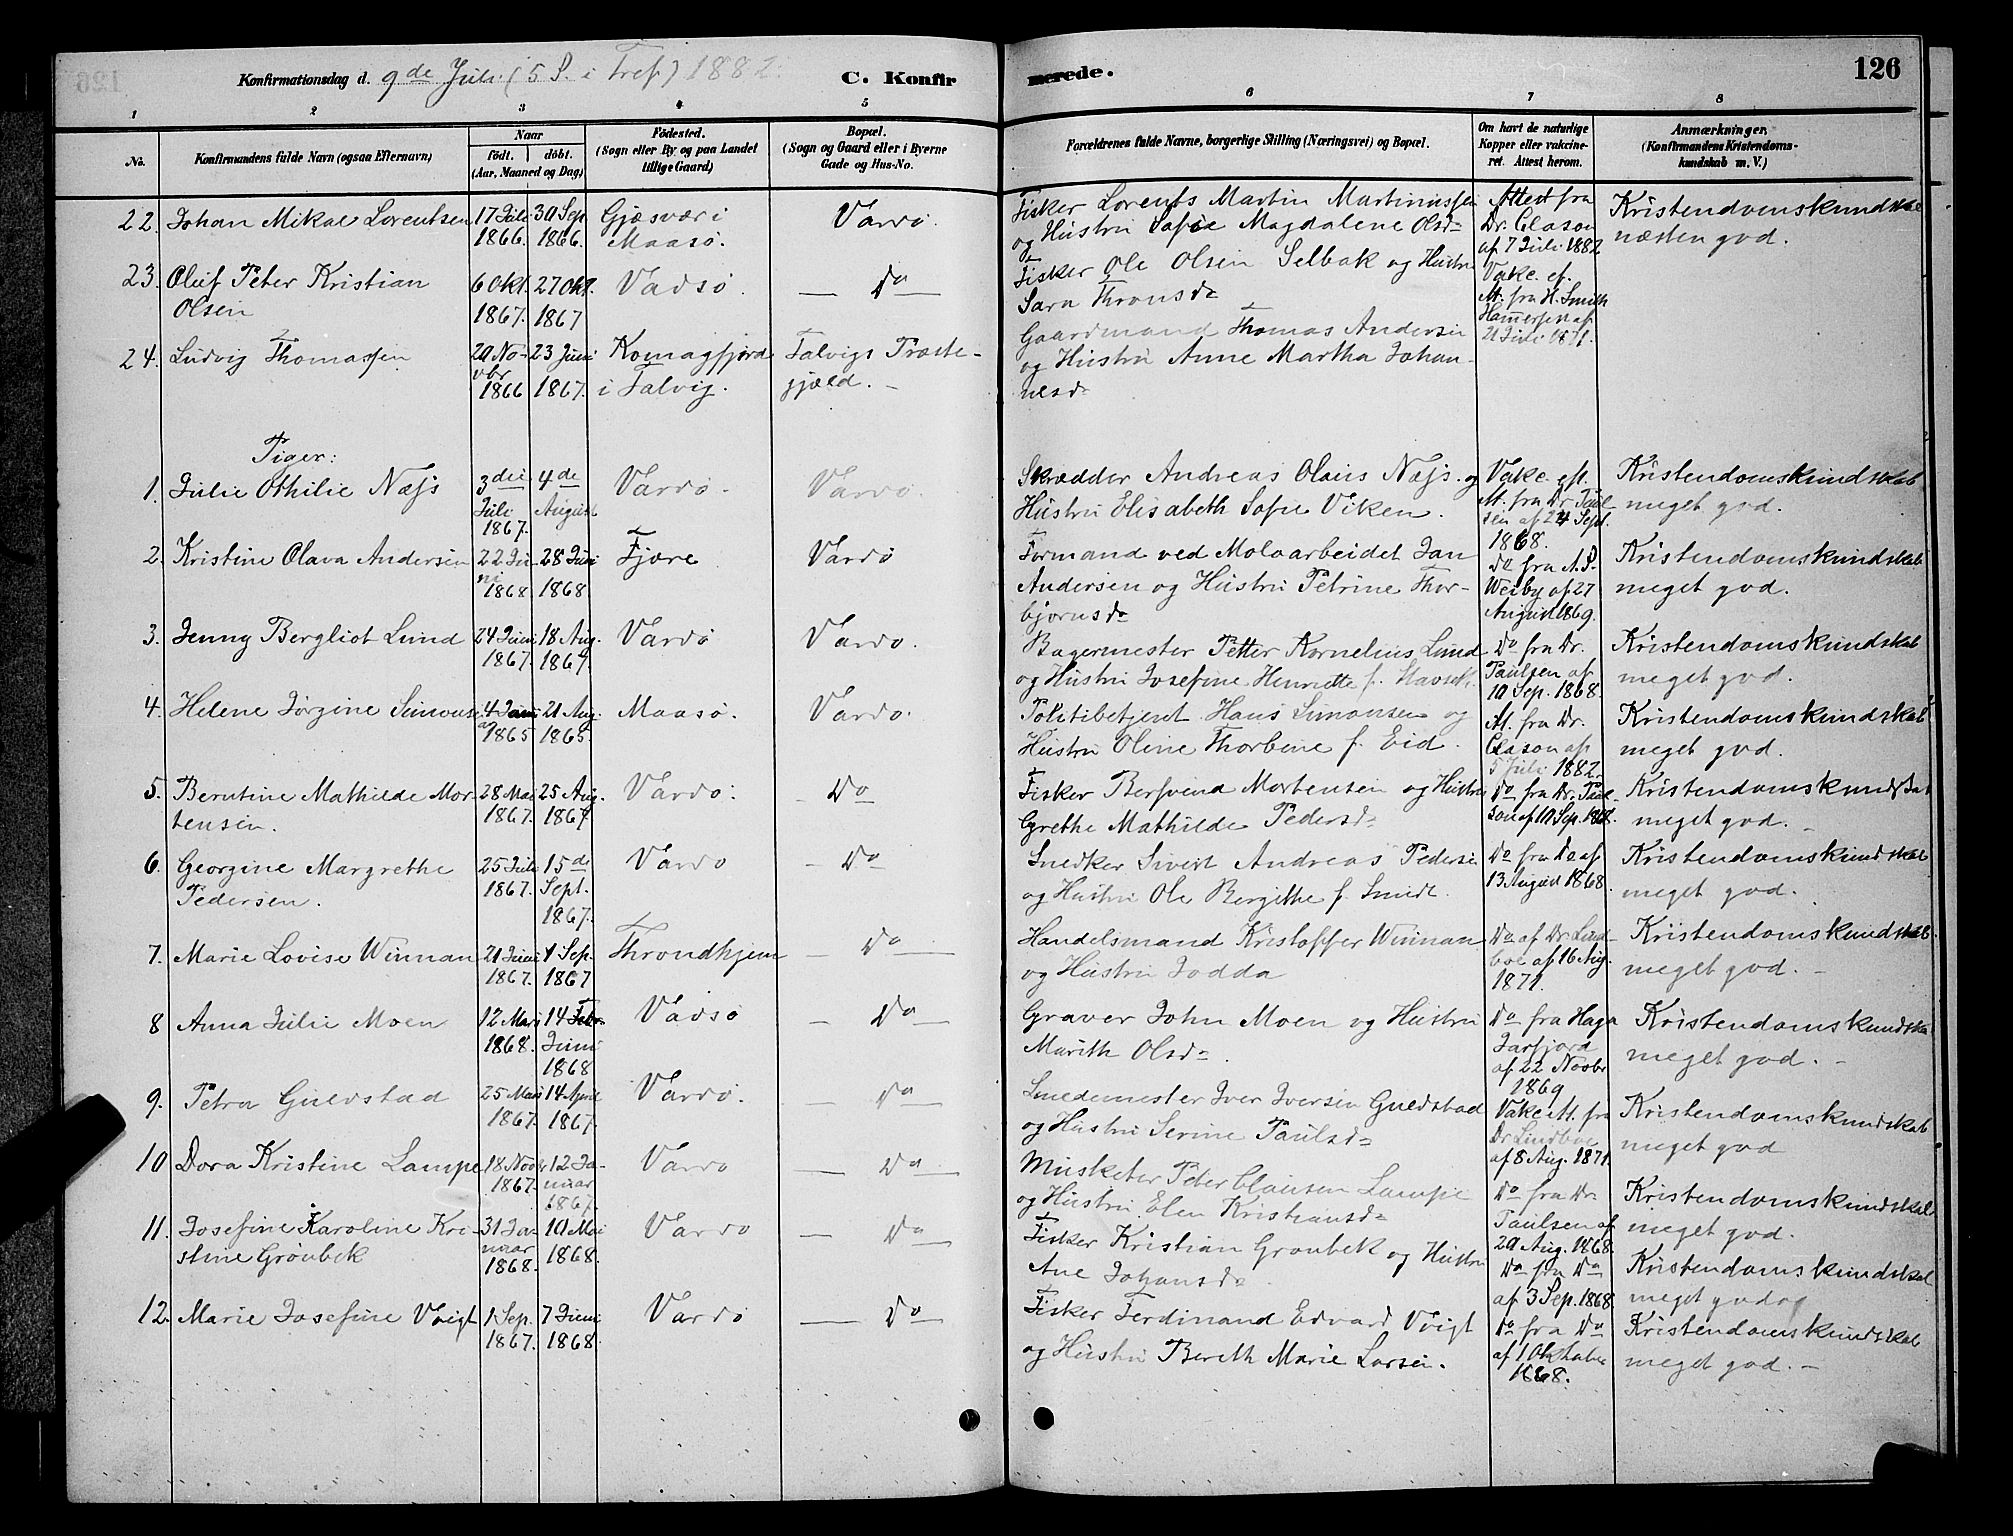 Konfirmationsdag d. 9de Juli (5 S. i Tref) 1882. C. Konfirmerede. 126
1 2 3 4 5 6 7 8
No. Konfirmandens fulde Navn (ogsaa Efternavn) Naar født. døbt. (Aar, Maaned og Dag) Fødested. (Sogn eller By og paa Landet tillige Gaard) Bopæl. (Sogn og Gaard eller i Byerne Gade og Hus-No. Forældrenes fulde Navne, borgerlige Stilling (Næringsvei) og Bopæl. Om havt de naturlige Kopper eller vaccineret. Attest herom. Anmærkninger. (Konfirmandens Kristendomskundskab m. V.)
22. Johan Mikal Lorentsen 17 Juli 1866. 30 Sep. 1866. Gjæsvær i Maasø. Vardø. Fisker Lorents Martin Martinussen og Hustru Sofie Magdalene Olsd. Attest fra Dr. Clason af 7 Juli 1882 Kristendomskundskab næsten god.
23. Oluf Peter Kristian Olsen 6 Okt. 1867. 27 Okt. 1867 Vadsø. Do Fisker Ole Olsen Selbak og Hustru Sara Thronsd. Vakc. ef. At. fra H. Smith Hammerfest af 21 Juli 1871.
24. Ludvig Thomassen 20 Novbr 1866 23 Juni 1867. Komagfjord i Talvig. Talvigs Præstegjæld. Gaardmand Thomas Andersen og Hustru Anne Martha Johannesd.
Piger:
1. Julie Othilie Næss 3die Juli 1867. 4de August Vardø. Vardø. Skrædder Andreas Olaus Næss. og Hustru Elisabeth Sofie Viken. Vakc. eft. At. fra Dr. Paulsen af 24 Sept. 1868. Kristendomskundskab meget god.
2. Kristine Olava Andersen 22 Juni 1868 28 Juni 1868 Fjære Vardø Formand ved Moloarbeidet Jan Andersen og Hustru Petrine Thorbjørnsd. Do fra A. S. Wesby af 27 August 1869. Kristendomskundskab meget god.
3. Jenny Bergliot Lund 24 Juni 1867. 18 Aug. 1867. Vardø Vardø. Bagermester Petter Kornelius Lund og Hustru Josefine Henriette f. Do fra Dr. Paulsen af 10 Sep. 1868. Kristendomskundskab meget god.
4. Helene Jørgine Simonsen 4 1865 21 Aug. 1865. Maasø. Vardø. Politibetjent Hans Simonsen og Hustru Oline Thorbine f. Eid. At. fra Dr. Clason af 5 Juli 1882. Kristendomskundskab meget god.
5. Berntine Mathilde Mortensen. 28 Mai 1867. 25 Aug. 1867 Vardø. Do Fisker Bersvend Mortensen og Hustru Grethe Mathilde Pedersd. Do fra Dr. Paulson af 10 Sep. 1868. Kristendomskundskab meget god.
6. Georgine Margrethe Pedersen. 25 Juli 1867. 15de Sept. 1867. Vardø Do Snedker Sivert Andreas Pedersen og Hustru Ole Bergithe f. Smidt. Do fra Do af 13 August 1868. Kristendomskundskab meget god.
7. Marie Lovise Winnan 21 Juni 1867. 1 Sep. 1867 Throndhjem Do Handelsmand Kristoffer Winnan og Hustru Jodda Do af Dr. Lindboe af 16 Aug. 1871. Kristendomskundskab. meget god.
8 Anna Julie Moen 12 Mars 1868. 14 Febr. Juni 1868 Vadsø Do Graver John Moen og Hustru Marith Olsd. Do fra Haga Jarfjord af 22 Novbr 1869 Kristendomskundskab meget god.
9. Petra Guldstad 25 1867. 14 April 1867. Vardø. Do Smedemester Iver Iversen Guldstad og Hustru Serine Paulsd. Vakc At. fra Dr Lindboe af 8 Aug. 1871. Kristendomskundskab meget god
10 Dora Kristine Lampe 18 Novbr 1867. 12 Januar 1867. Vardø Do Musketer Peter Clausen Lampe og Hustru Elen Kristiansd. Do fra Dr. Paulsen af 20 Aug. 1868. Kristendomskundskab meget god.
11. Josefine Karoline Kristine Grønbek 31 Januar 1868. 10 Mai 1868. Vardø Do Fisker Kristian Grønbek og Hustru Ane Johansd. Do fra Do af 3 Sep. 1868. Kristendomskundskab meget god
12. Marie Josefine Voigt 1 Sep. 1867. 7 Juni 1868. Vardø Do Fisker Ferdinand Edvard Voigt og Hustru Bereth Marie Larsen. Do fra Do af 1 Oktober 1868. Kristendomskundskab meget god.